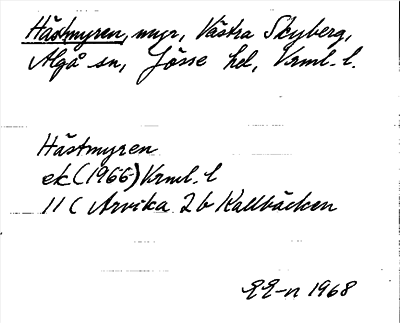 Hästmyren, myr, Västra Skyberg,
Älgå sn, Jösse hd, Vrml. l.
Hästmyren
ek (1966) Vrml. l
11 C Arvika 2 b Kallbäcken
1968